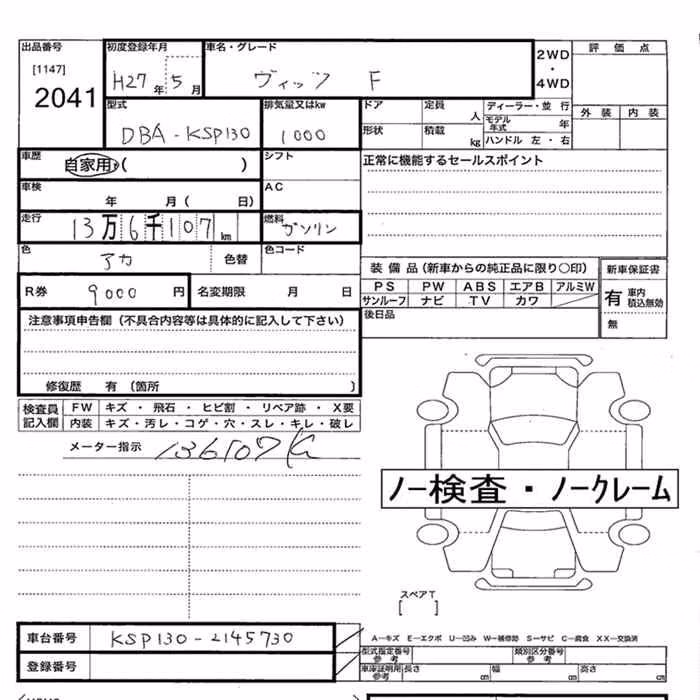 出品番号
[1147]
2041
初度登録年月
H27年 5月
車名・グレード
ヴィッツ F
2WD
・
4WD
評価点
外装 内装
型式
DBA-KSP130
排気量又はkw
1000
ドア 定員 人
形状 積載 kg
ディーラー・並 行
モデル年式 年
ハンドル 左・右
車歴
自家用・( )
シフト
正常に機能するセールスポイント
車検
年 月( 日)
AC
走行
13万6千107km
燃料
ガソリン
色
アカ 色替
色コード
装備品(新車からの純正品に限り○印)
PS PW ABS エアB アルミW
サンルーフ ナビ TV カワ
新車保証書
有 車内積込無効
無
R券 9000 円
名変期限 月 日
後日品
注意事項申告欄(不具合内容等は具体的に記入して下さい)
修復歴 有(箇所 )
検査員記入欄
FW キズ・飛石・ヒビ割・リペア跡・X要
内装 キズ・汚レ・コゲ・穴・スレ・キレ・破レ
メーター指示 136107K
ノー検査・ノークレーム
スペアT
[ ]
車台番号 KSP130-2145730
登録番号
A—キズ E—エクボ U—凹み W—補修跡 S—サビ C—腐食 XX—交換済
型式指定番号 参考
類別区分番号 参考
車庫証明用 参考 長さ cm 幅 cm 高さ cm